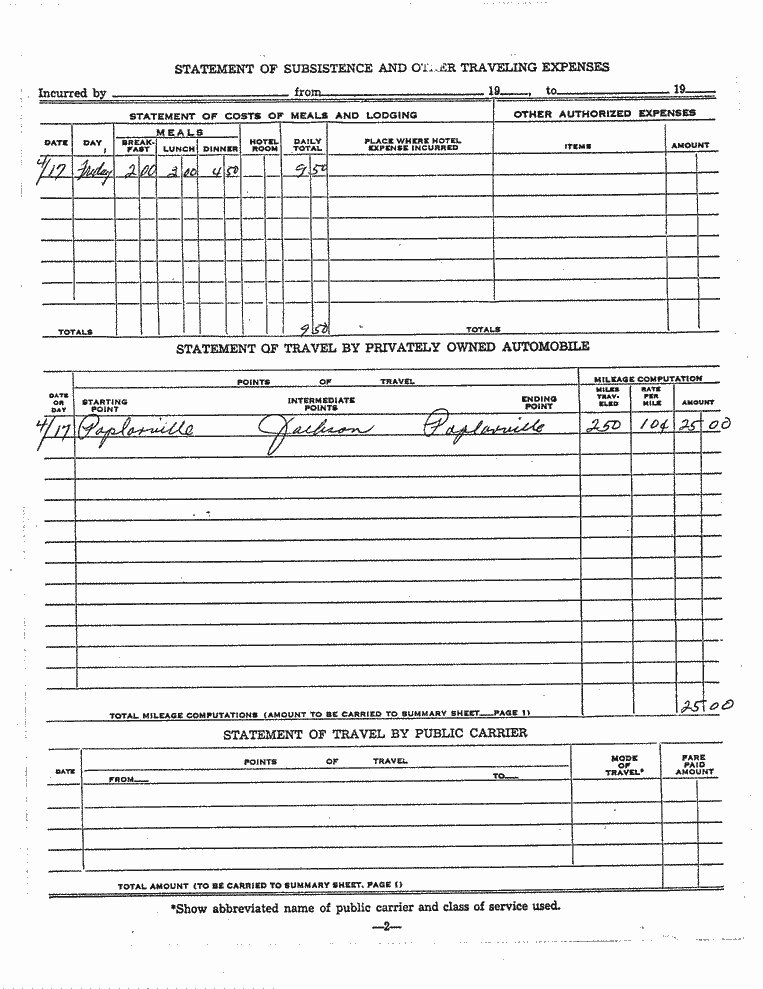 STATEMENT OF SUBSISTENCE AND OTHER TRAVELING EXPENSES
Incurred by from 19 , to 19
STATEMENT OF COSTS OF MEALS AND LODGING OTHER AUTHORIZED EXPENSES
MEALS
DATE DAY BREAK-FAST LUNCH DINNER HOTEL ROOM DAILY TOTAL PLACE WHERE HOTEL EXPENSE INCURRED ITEMS AMOUNT
4/17 Friday 2 00 3 00 4 50 9 50
TOTALS 9 50 TOTALS
STATEMENT OF TRAVEL BY PRIVATELY OWNED AUTOMOBILE
POINTS OF TRAVEL MILEAGE COMPUTATION
DATE OR DAY STARTING POINT INTERMEDIATE POINTS ENDING POINT MILES TRAV-ELED RATE PER MILE AMOUNT
4/17 Poplarville Jackson Poplarville 250 10¢ 25 00
TOTAL MILEAGE COMPUTATIONS (AMOUNT TO BE CARRIED TO SUMMARY SHEET—PAGE 1) 25 00
STATEMENT OF TRAVEL BY PUBLIC CARRIER
DATE POINTS OF TRAVEL MODE OF TRAVEL* FARE PAID AMOUNT
FROM— TO—
TOTAL AMOUNT (TO BE CARRIED TO SUMMARY SHEET, PAGE 1)
*Show abbreviated name of public carrier and class of service used.
—2—